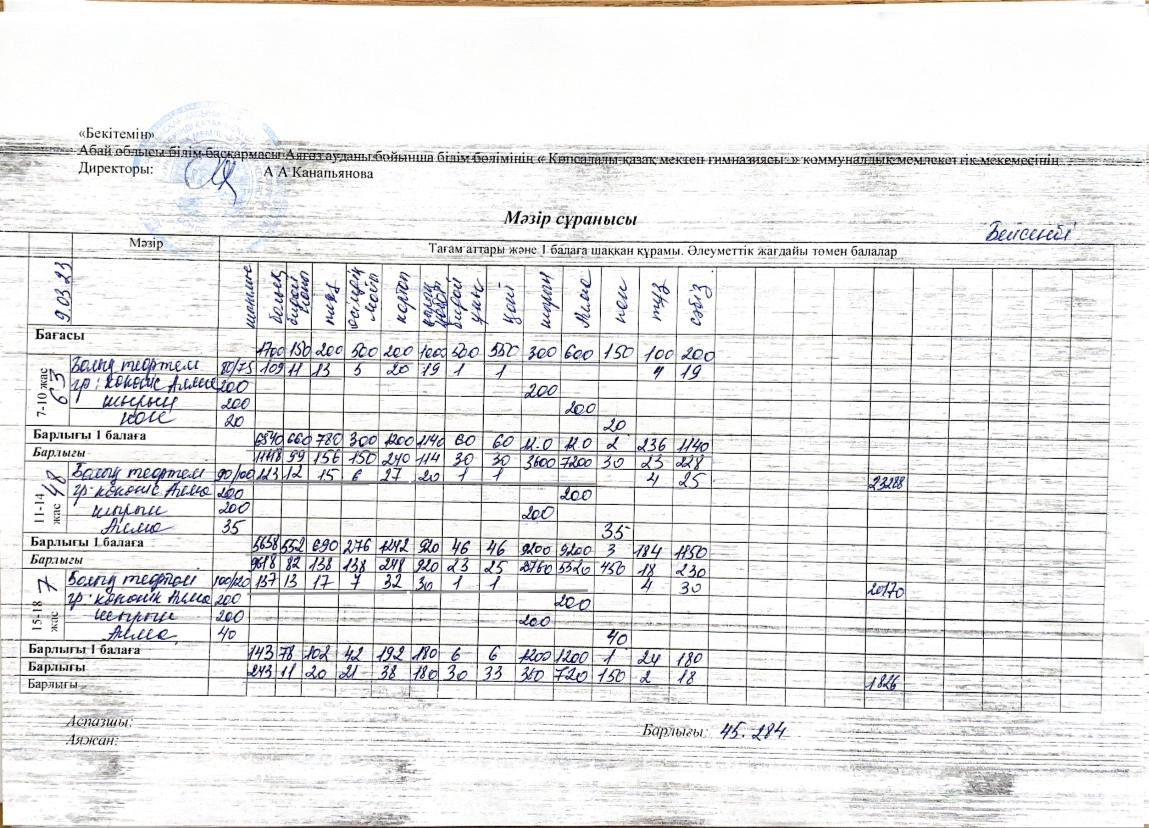 «Бекітемін»
Абай облысы білім басқармасы Аягөз ауданы бойынша білім бөлімінің « Көпсалалы қазақ мектеп гимназиясы » коммуналдық мемлекеттік мекемесінің
Директоры: А А Канапьянова
Мәзір сұранысы
Бейсенбі
Мәзір Тағам аттары және 1 балаға шаққан құрамы. Әлеуметтік жағдайы төмен балалар
9 03 23 балық пияз өсімдік май картоп ұн шай шырын Алма нан тұз сәбіз
Бағасы
1700 150 200 500 200 1000 500 550 300 600 150 100 200
7-10 жас 63
80/75 109 11 13 5 20 19 1 1 4 19
200 200
шырын 200 200
нан 20 20
Барлығы 1 балаға 6540 660 780 300 1200 1140 60 60 2 236 1140
Барлығы 99 156 150 240 114 30 30 3600 7200 30 23 228
11-14 жас 48
90/100 123 12 15 6 27 20 1 1 4 25 23288
Алма 200 200
шырын 200 200
35 35
Барлығы 1 балаға 5658 552 690 276 1242 920 46 46 9200 9200 3 184 1150
Барлығы 9618 82 138 138 248 920 23 25 2760 5520 450 18 230
15-18 жас 7
100/120 137 13 17 7 32 30 1 1 4 30 20170
Алма 200 200
шырын 200 200
Алма 40 40
Барлығы 1 балаға 143 78 102 42 192 180 6 6 1200 1200 1 24 180
Барлығы 243 11 20 21 38 180 30 33 360 720 150 2 18
Барлығы 1826
Аспазшы:
Аяжан:
Барлығы: 45. 284